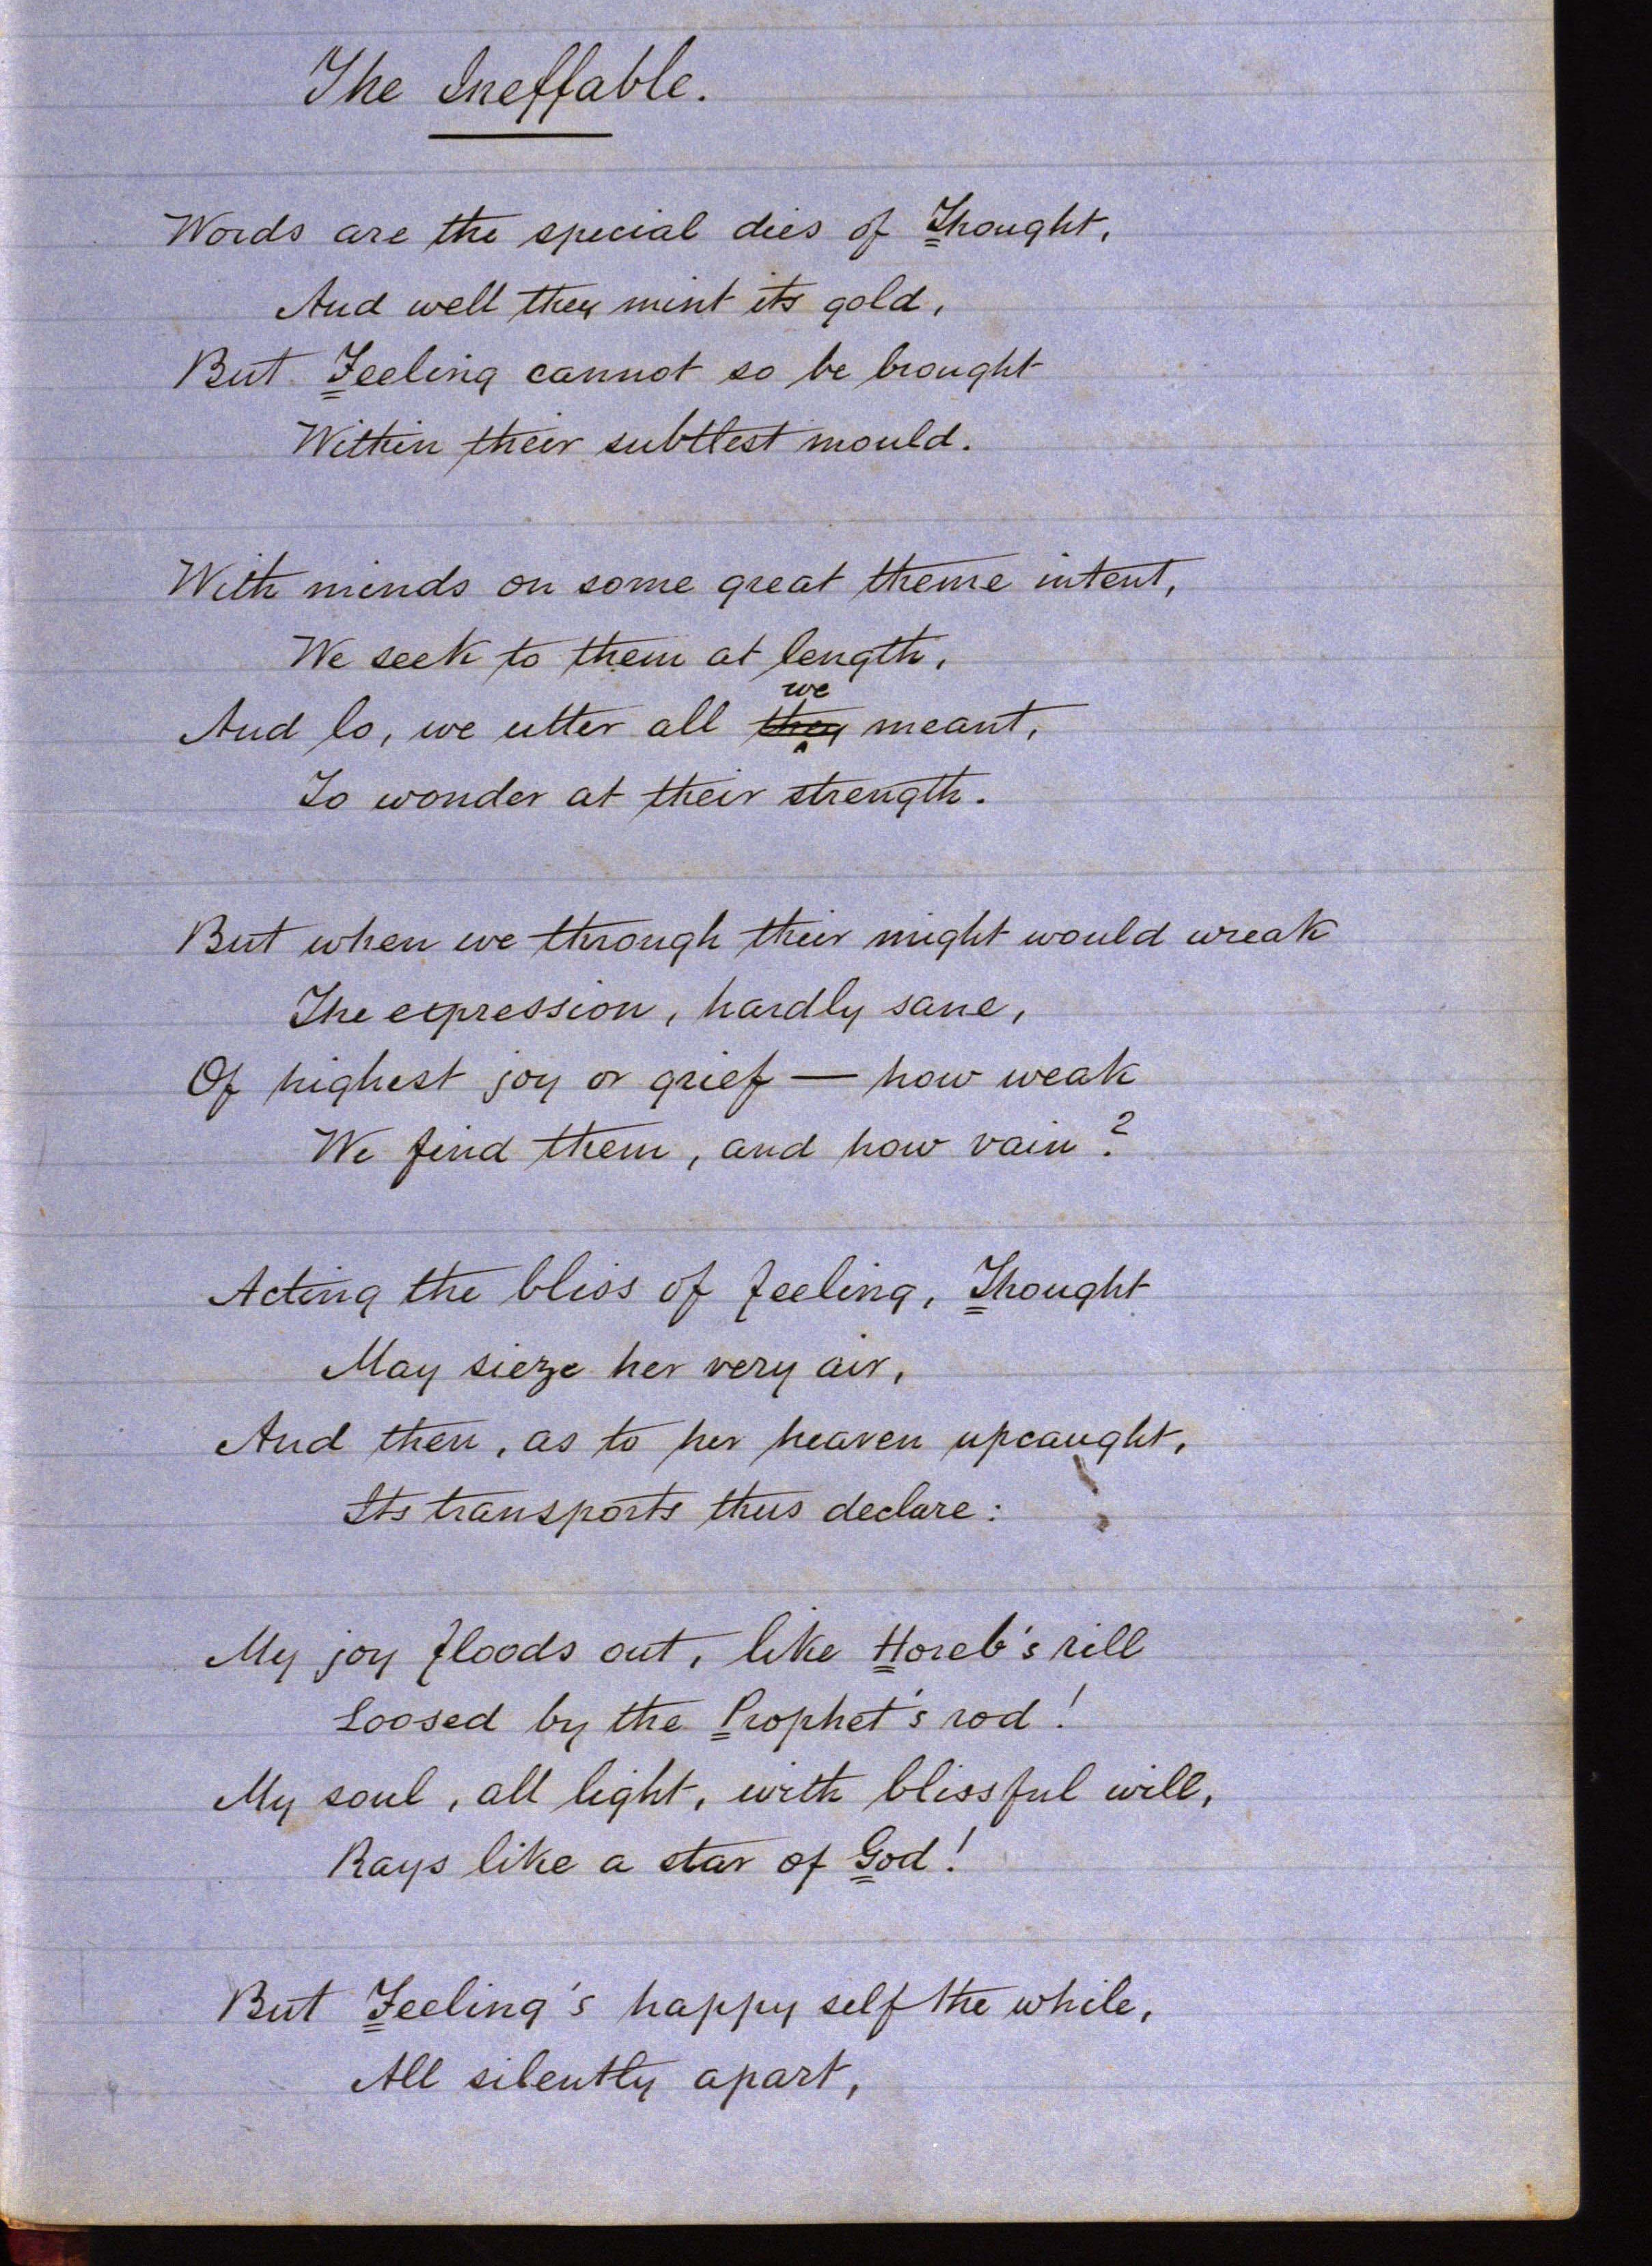 The Ineffable.
Words are the special dies of Thought,
And well they mint its gold,
But Feeling cannot so be brought
Within their subtlest mould.
With minds on some great theme intent,
We seek to them at length,
we
And lo, we utter all they meant,
To wonder at their strength.
But when we through their might would wreak
The expression, hardly sane,
Of highest joy or grief — how weak
We find them, and how vain?
Acting the bliss of feeling, Thought
May sieze her very air,
And then, as to her heaven upcaught,
Its transports thus declare:
My joy floods out, like Horeb's rill
Loosed by the Prophet's rod!
My soul, all light, with blissful will,
Rays like a star of God!
But Feeling's happy self the while,
All silently apart,